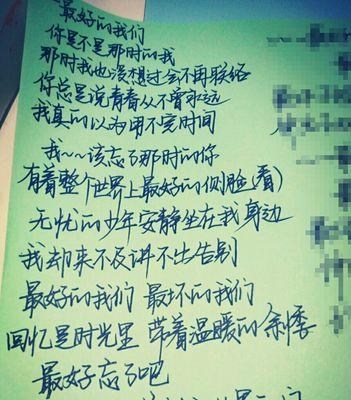 最好的我们
你是不是那时的我
那时我也没想过会不再联络
你总是说青春从不曾永远
我真的以为用不完时间
我~~该忘了那时的你
有着整个世界上最好的侧脸(看)
无忧的少年安静坐在我身边
我却来不及讲不出告别
最好的我们 最坏的我们
回忆是时光里 带着温暖的余悸
最好忘了吧